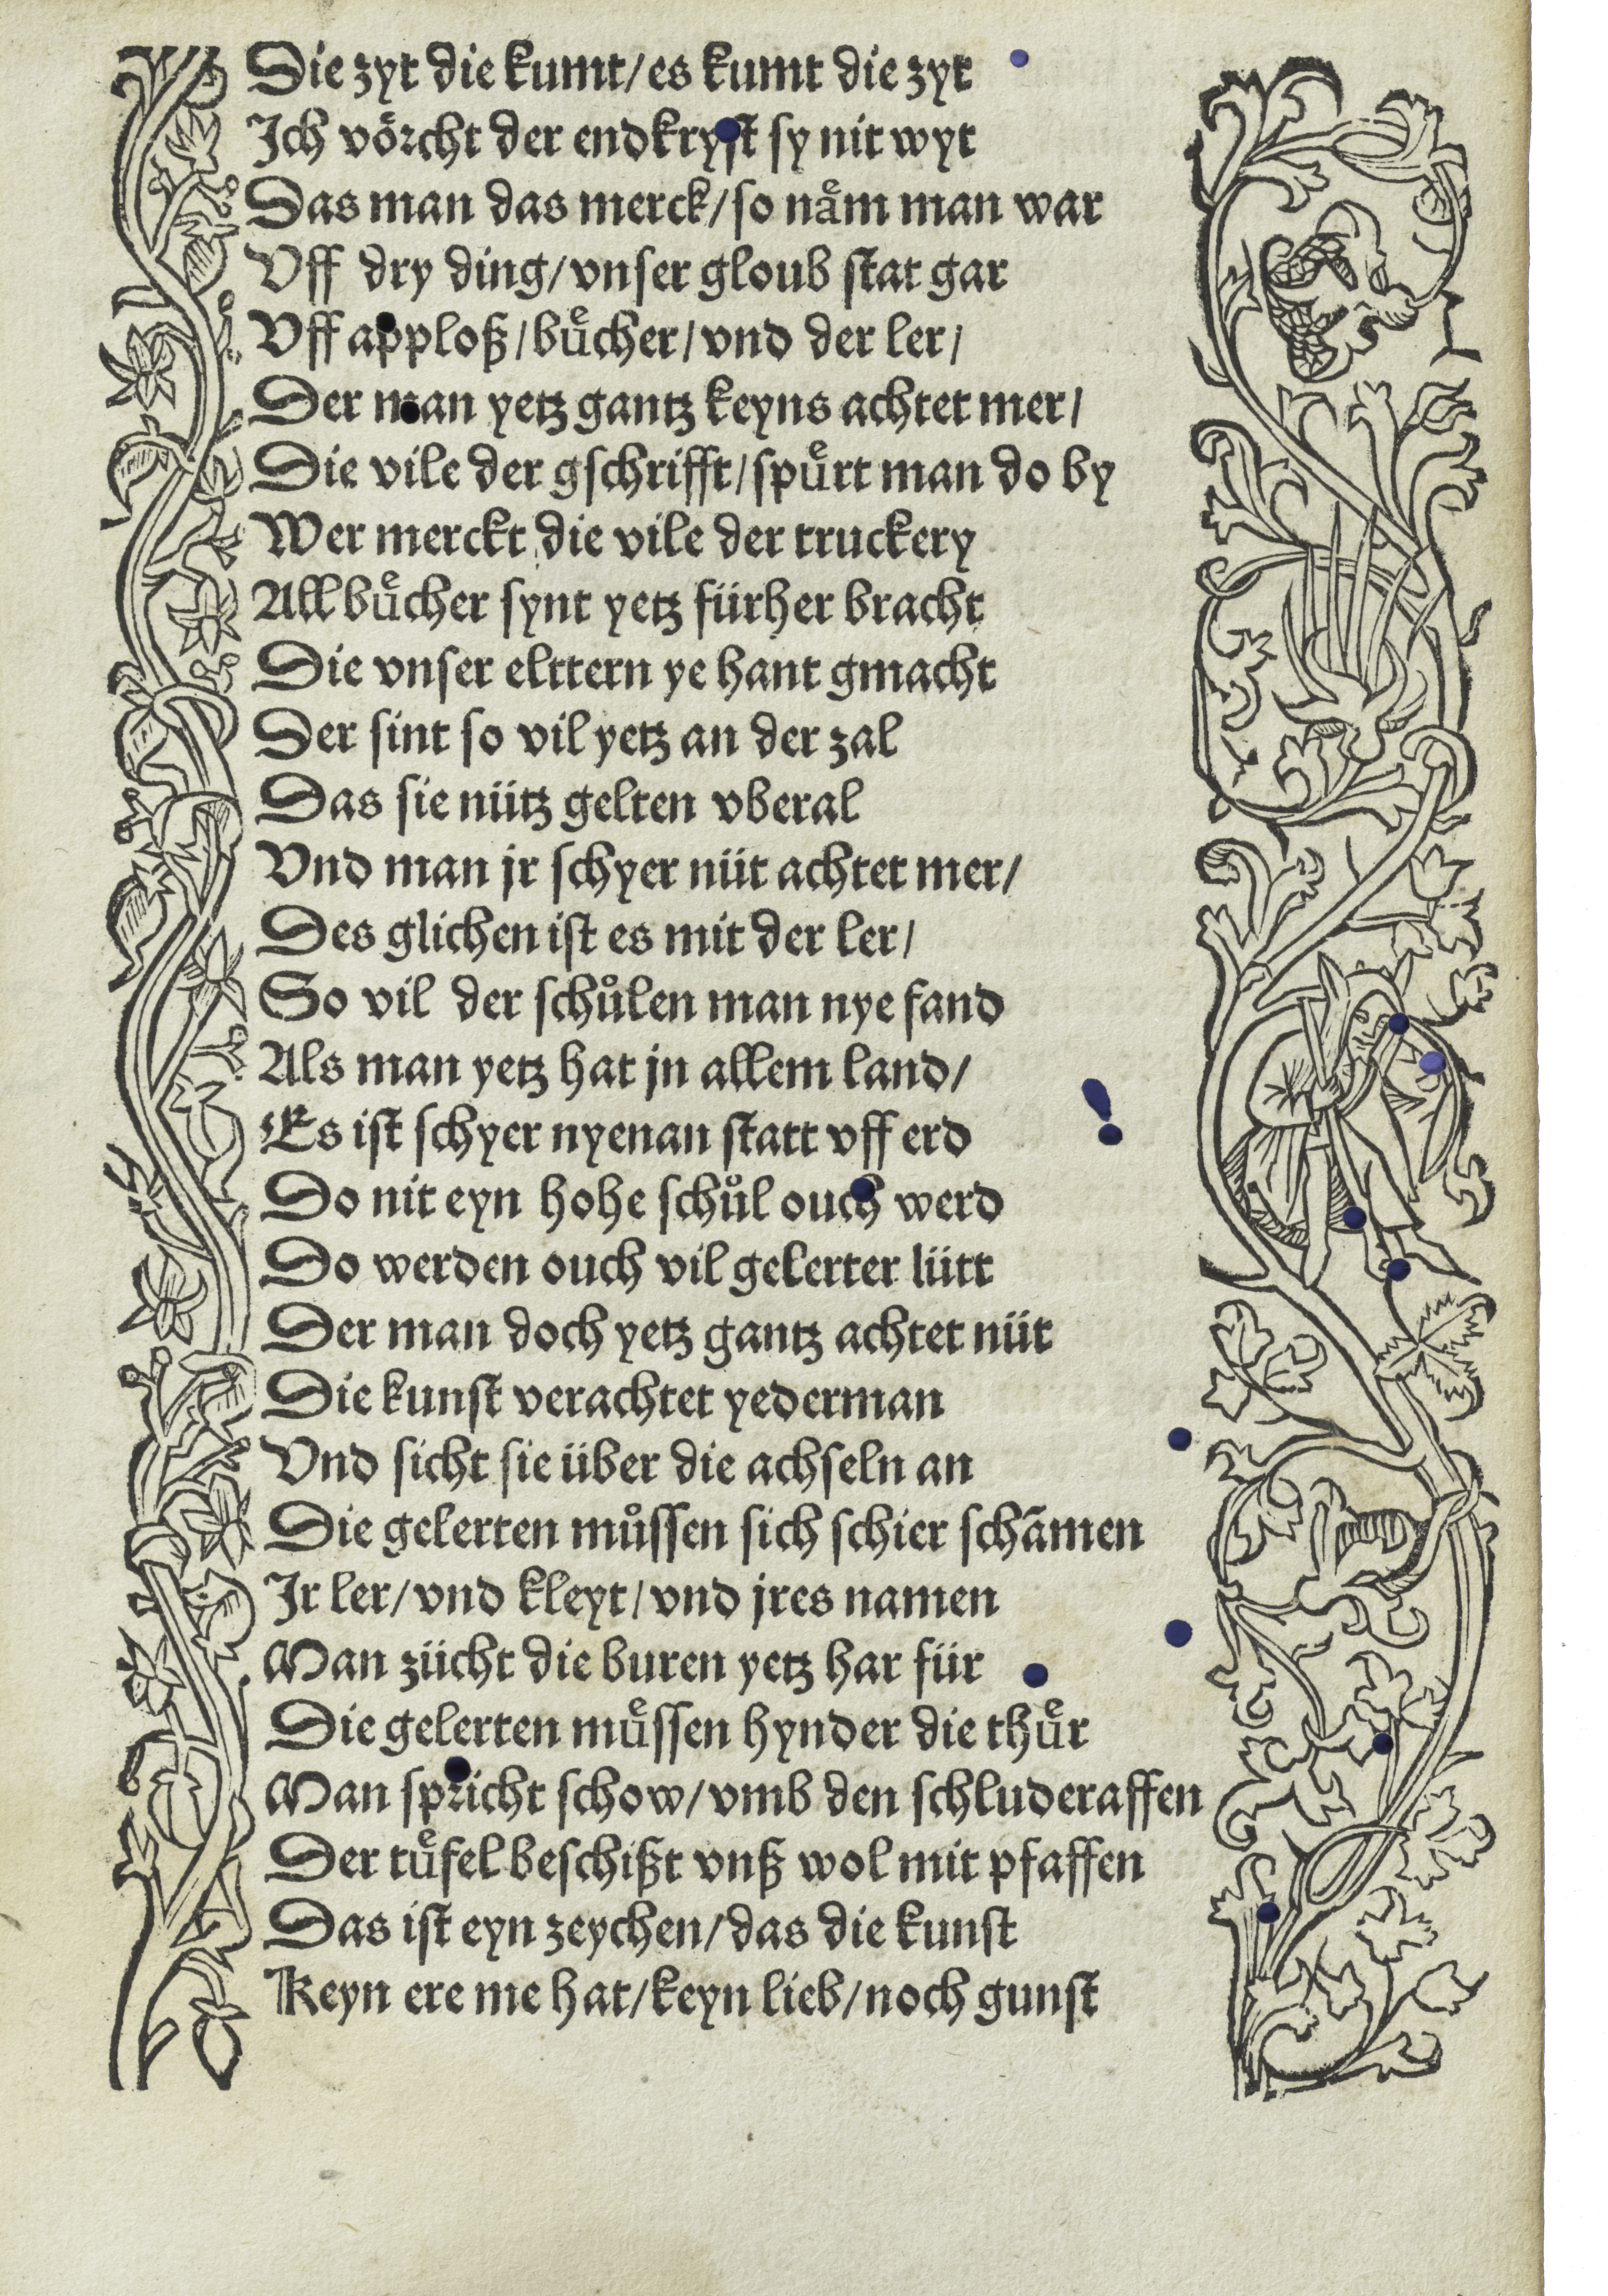 Die zyt die kumt/es kumt die zyt
Ich voͤrcht der endkryst sy nit wyt
Das man das merck/so naͤm man war
Vff dry ding/vnser gloub stat gar
Vff apploß/buͤcher/vnd der ler/
Der man yetz gantz keyns achtet mer/
Die vile der gschrifft/spuͤrt man do by
Wer merckt die vile der truckery
All buͤcher synt yetz fürher bracht
Die vnser elttern ye hant gmacht
Der sint so vil yetz an der zal
Das sie nütz gelten vberal
Vnd man jr schyer nüt achtet mer/
Des glichen ist es mit der ler/
So vil der schuͦlen man nye fand
Als man yetz hat jn allem land/
Es ist schyer nyenan statt vff erd
Do nit eyn hohe schuͦl ouch werd
Do werden ouch vil gelerter lütt
Der man doch yetz gantz achtet nüt
Die kunst verachtet yederman
Vnd sicht sie über die achseln an
Die gelerten muͦssen sich schier schãmen
Ir ler/vnd kleyt/vnd jres namen
Man zücht die buren yetz har für
Die gelerten muͤssen hynder die thuͤr
Man spricht schow/vmb den schluderaffen
Der tuͤfel beschißt vnß wol mit pfaffen
Das ist eyn zeychen/das die kunst
Keyn ere me hat/keyn lieb/noch gunst